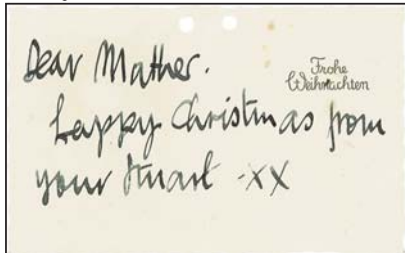 Dear Mother.
Frohe
Weihnachten
Happy Christmas from
your Stuart -XX